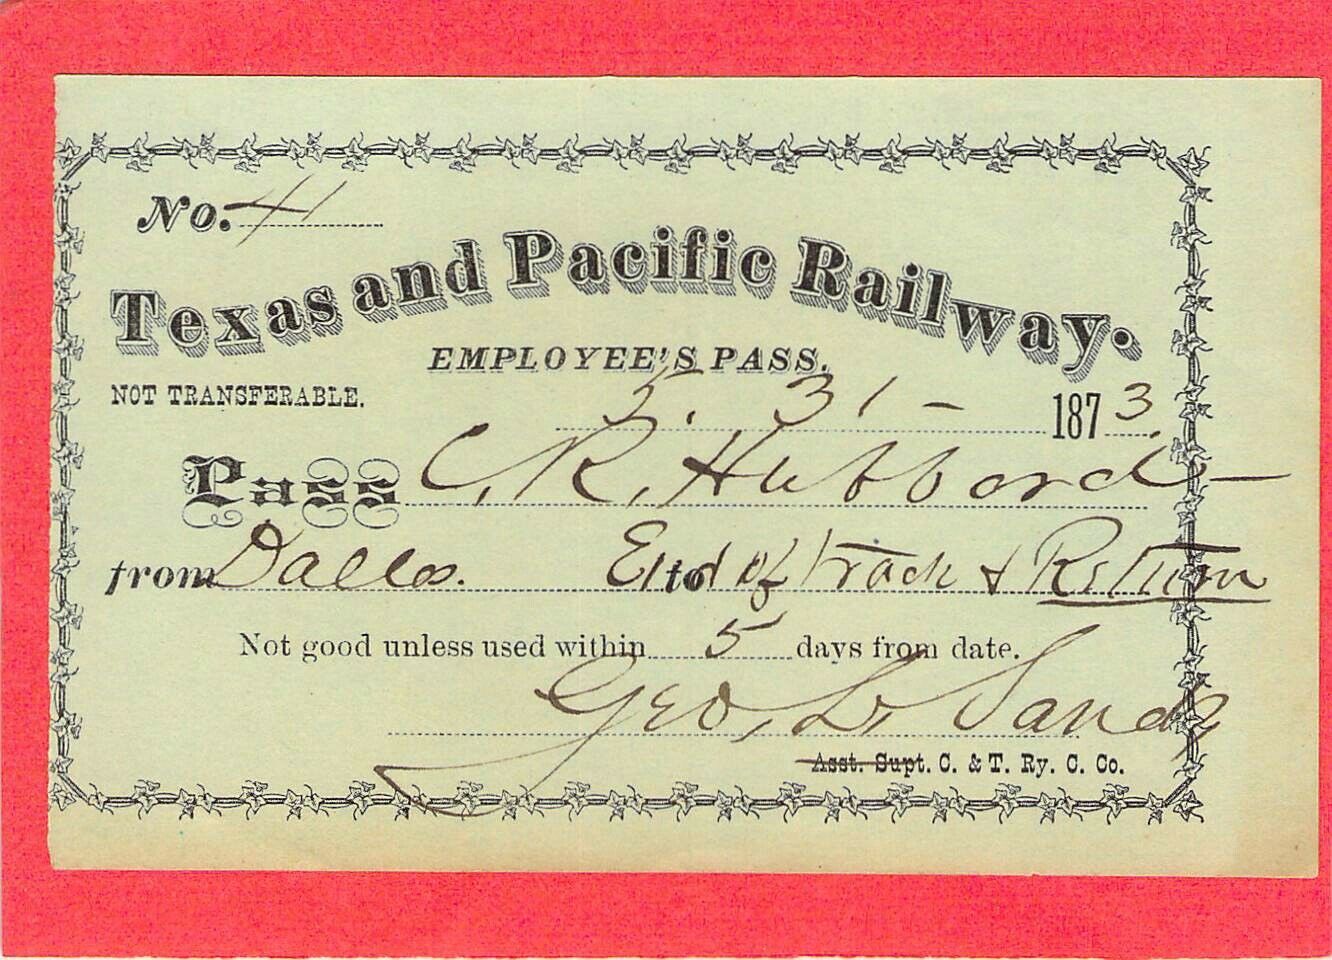 No. 41
Texas and Pacific Railway.
EMPLOYEE'S PASS.
NOT TRANSFERABLE.
5. 31 - 1873.
Pass C. R. Hubbard -
from Dallas. to End of track & Return
Not good unless used within 5 days from date.
Geo. L. Sands
Asst. Supt. C. & T. Ry. C. Co.